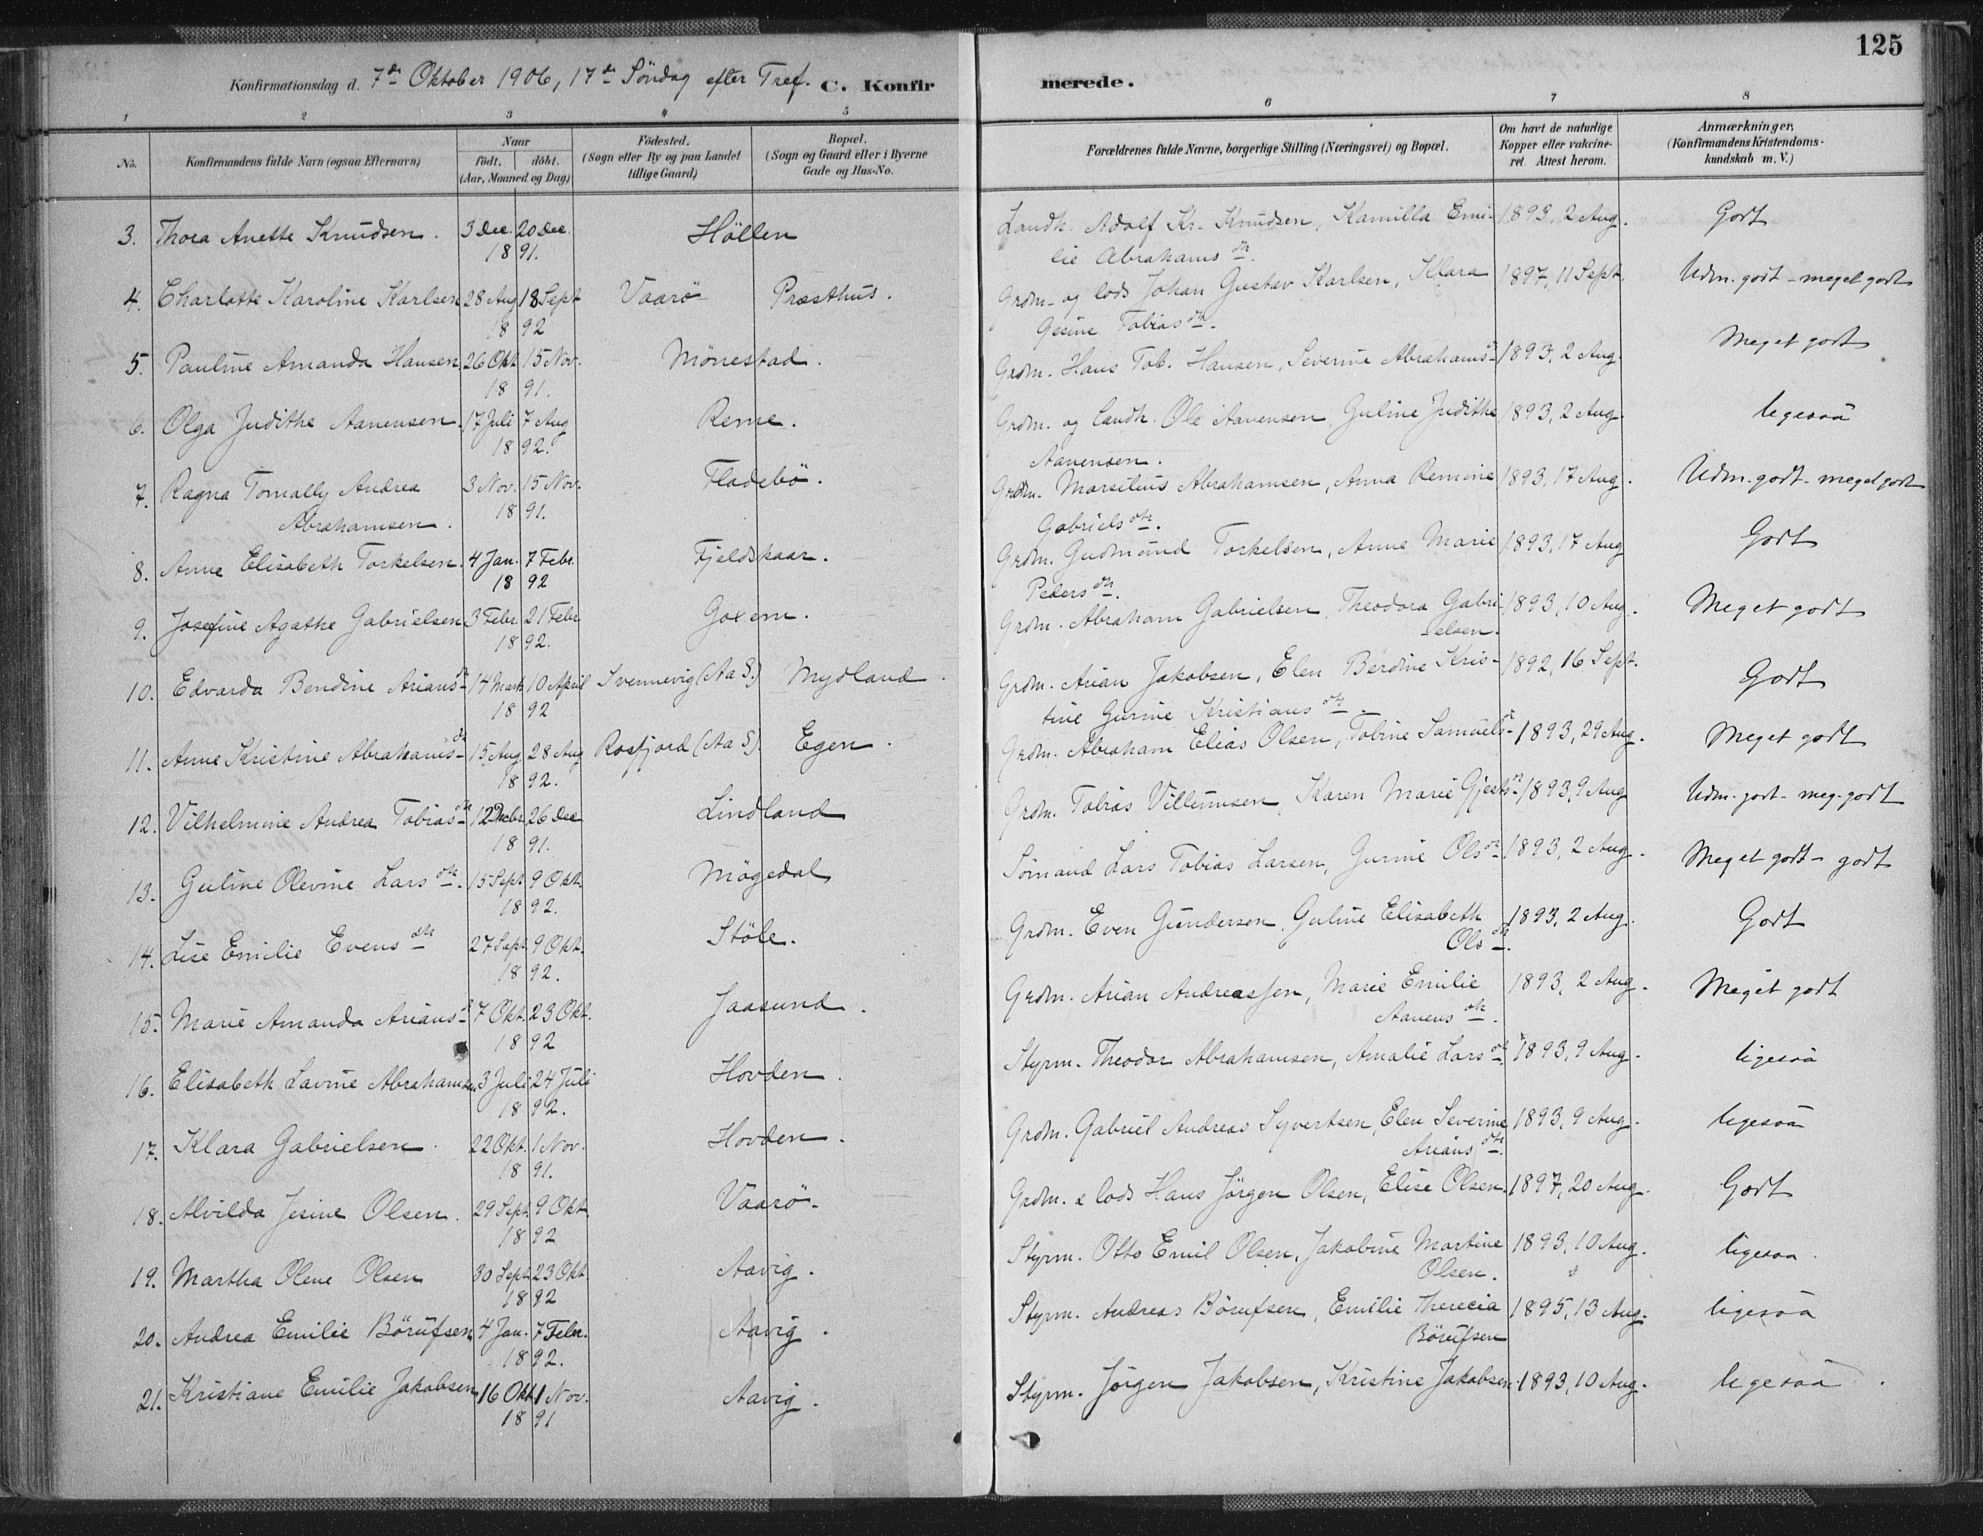 125
Konfirmationsdag d. 7de Oktober 1906, 17de Söndag efter Tref. C. Konfirmerede.
1 2 3 4 5 6 7 8
No. Konfirmandens fulde Navn (ogsaa Efternavn) Naar födt. döbt. (Aar, Maaned og Dag) Födested. (Sogn eller By og paa Landet tillige Gaard) Bopæl. (Sogn og Gaard eller i Byerne Gade og Hus-No. Forældrenes fulde Navne, borgerlige Stilling (Næringsvei) og Bopæl. Om havt de naturlige Kopper eller vakcineret. Attest herom. Anmærkninger. (Konfirmandens Kristendomskundskab m. V.)
3. Thora Anette Knudsen. 3 Dec. 20 Dec. Höllen Landh. Adolf Kr. Knudsen, Kamilla Emi- 1893, 2 Aug. Godt
1891. lie Abrahamsdtr.
4. Charlotte Karoline Karlsen 28 Aug 18 Sept Vaarö Præsthus. Grdm. og lods Johan Gustav Karlsen, Klara 1897, 11 Sept. Udm. godt - meget godt
1892 Gesine Tobiasdtr.
5. Pauline Amanda Hansen 26 Okt 15 Nov. Mönestad. Grdm. Hans Tob. Hansen, Severine Abrahamsdtr 1893, 2 Aug. Meget godt
1891.
6. Olga Judithe Aanensen. 17 Juli 7 Aug Reme. Grdm. og landh. Ole Aanensen, Guline Judithe 1893, 2 Aug. ligesaa
1892. Aanensen.
7. Ragna Tomally Andrea 3 Nov. 15 Nov. Fladebö. Grdm. Marselius Abrahamsen, Anna Remine 1893, 17 Aug. Udm. godt - meget godt
Abrahamsen. 1891. Gabrielsdtr.
8. Anne Elisabeth Torkelsen. 4 Jan. 7 Febr. Fjeldskaar. Grdm. Gudmund Torkelsen, Anne Marie 1893, 17 Aug Godt
1892 Pedersdtr.
9. Josefine Agathe Gabrielsen 3 Febr. 21 Febr Goxem. Grdm. Abraham Gabrielsen, Theodora Gabri- 1893, 10 Aug. Meget godt
1892. elsen.
10. Edvarda Bendine Ariansdtr 14 Marts 10 April Svennevig (Aa S.) Mydland. Grdm. Arian Jakobsen, Elen Berdine Kris- 1892, 16 Sept. Godt
1892 tine Gurine Kristiansdtr.
11. Anne Kristine Abrahamsdtr 15 Aug 28 Aug Rosfjord (Aa S). Egen. Grdm. Abraham Elias Olsen, Tobine Samuelsdtr 1893, 29 Aug. Meget godt
1892.
12. Vilhelmine Andrea Tobiasdtr 12 Decbr. 26 Dec Lindland Grdm. Tobias Villumsen, Karen Marie Gjertsdtr 1893, 9 Aug Udm. godt - meg. godt
1891.
13. Guline Olevine Larsdtr. 15 Sept 9 Okt. Mögedal Sömand Lars Tobias Larsen, Gurine Olsdtr 1893, 2 Aug. Meget godt - godt
1892.
14. Lise Emilie Evensdtr 27 Sept. 9 Okt. Stöle. Grdm. Even Gundersen, Guline Elisabeth 1893, 2 Aug. Godt
1892. Olsdtr.
15. Marie Amanda Ariansdtr 7 Okt. 23 Okt. Jaasund. Grdm. Arian Andreassen, Marie Emilie 1893, 2 Aug. Meget godt
1892 Aanensdtr.
16. Elisabeth Lavine Abrahamsen 3 Juli 24 Juli Hovden. Styrm. Theodor Abrahamsen, Amalie Larsdtr 1893, 9 Aug. ligesaa
1892.
17. Klara Gabrielsen. 22 Okt. 1 Nov. Hovden. Grdm. Gabriel Andreas Syvertsen, Elen Severine 1893, 9 Aug. ligesaa
1891. Ariansdtr.
18. Alvilda Jesine Olsen. 29 Sept. 9 Okt. Vaarö. Grdm. & lods Hans Jörgen Olsen, Elise Olsen. 1897, 20 Aug. Godt
1892
19. Martha Olene Olsen 30 Sept. 23 Okt. Aavig. Styrm. Otto Emil Olsen, Jakobine Martine 1893, 10 Aug. ligesaa.
1892 Olsen.
20. Andrea Emilie Börufsen 4 Jan. 7 Febr. Aavig. Styrm. Andreas Börufsen, Emilie Therecia 1895, 13 Aug. ligesaa
1892. Börufsen
21. Kristiane Emilie Jakobsen 16 Okt. 1 Nov. Aavig. Styrm. Jörgen Jakobsen, Kristine Jakobsen. 1893, 10 Aug. ligesaa.
1891